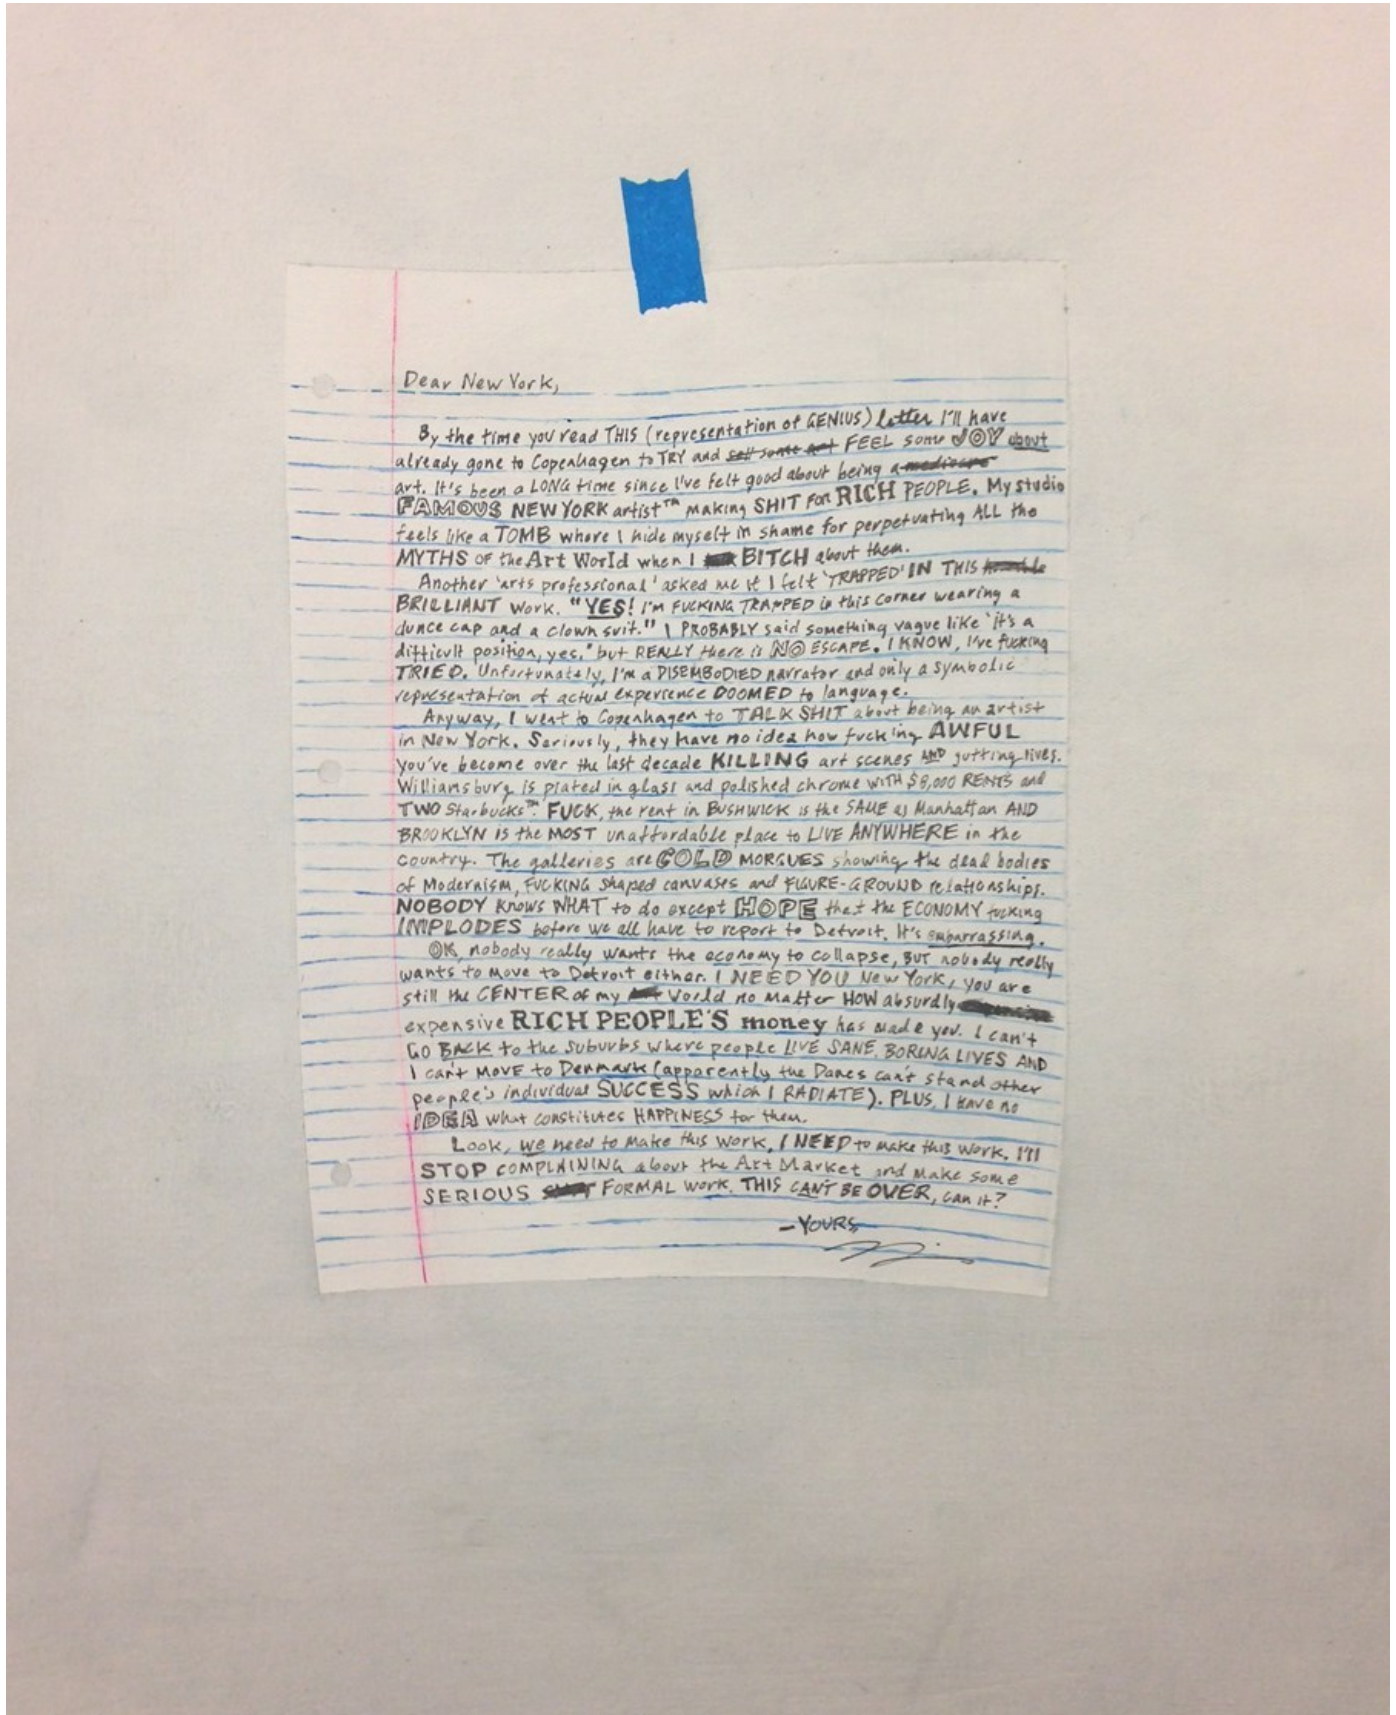 Dear New York,
By the time you read THIS (representation of GENIUS) letter I'll have
already gone to Copenhagen to TRY and sell some art FEEL some JOY about
art. It's been a LONG time since I've felt good about being a mediocre
FAMOUS NEW YORK artist™ making SHIT for RICH PEOPLE. My studio
feels like a TOMB where I hide myself in shame for perpetuating ALL the
MYTHS of the Art World when I BITCH about them.
Another 'arts professional' asked me if I felt 'TRAPPED' IN THIS
BRILLIANT work. "YES! I'M FUCKING TRAPPED in this corner wearing a
dunce cap and a clown suit." I PROBABLY said something vague like 'it's a
difficult position, yes,' but REALLY there is NO ESCAPE. I KNOW, I've fucking
TRIED. Unfortunately, I'm a DISEMBODIED narrator and only a symbolic
representation of actual experience DOOMED to language.
Anyway, I went to Copenhagen to TALK SHIT about being an artist
in New York. Seriously, they have no idea how fucking AWFUL
you've become over the last decade KILLING art scenes AND gutting lives.
Williamsburg is plated in glass and polished chrome WITH $8,000 RENTS and
TWO Starbucks™. FUCK, the rent in BUSHWICK is the SAME as Manhattan AND
BROOKLYN is the MOST unaffordable place to LIVE ANYWHERE in the
country. The galleries are COLD MORGUES showing the dead bodies
of Modernism, FUCKING shaped canvases and FIGURE-GROUND relationships.
NOBODY knows WHAT to do except HOPE that the ECONOMY fucking
IMPLODES before we all have to report to Detroit. It's embarrassing.
OK, nobody really wants the economy to collapse, BUT nobody really
wants to move to Detroit either. I NEED YOU New York, you are
still the CENTER of my World no matter HOW absurdly
expensive RICH PEOPLE'S money has made you. I can't
GO BACK to the suburbs where people LIVE SANE, BORING LIVES AND
I can't MOVE to Denmark (apparently the Danes can't stand other
people's individual SUCCESS which I RADIATE). PLUS, I have no
IDEA what constitutes HAPPINESS for them.
Look, we need to make this work. I NEED to make this work. I'll
STOP COMPLAINING about the Art Market and make some
SERIOUS FORMAL work. THIS CAN'T BE OVER, can it?
-YOURS,